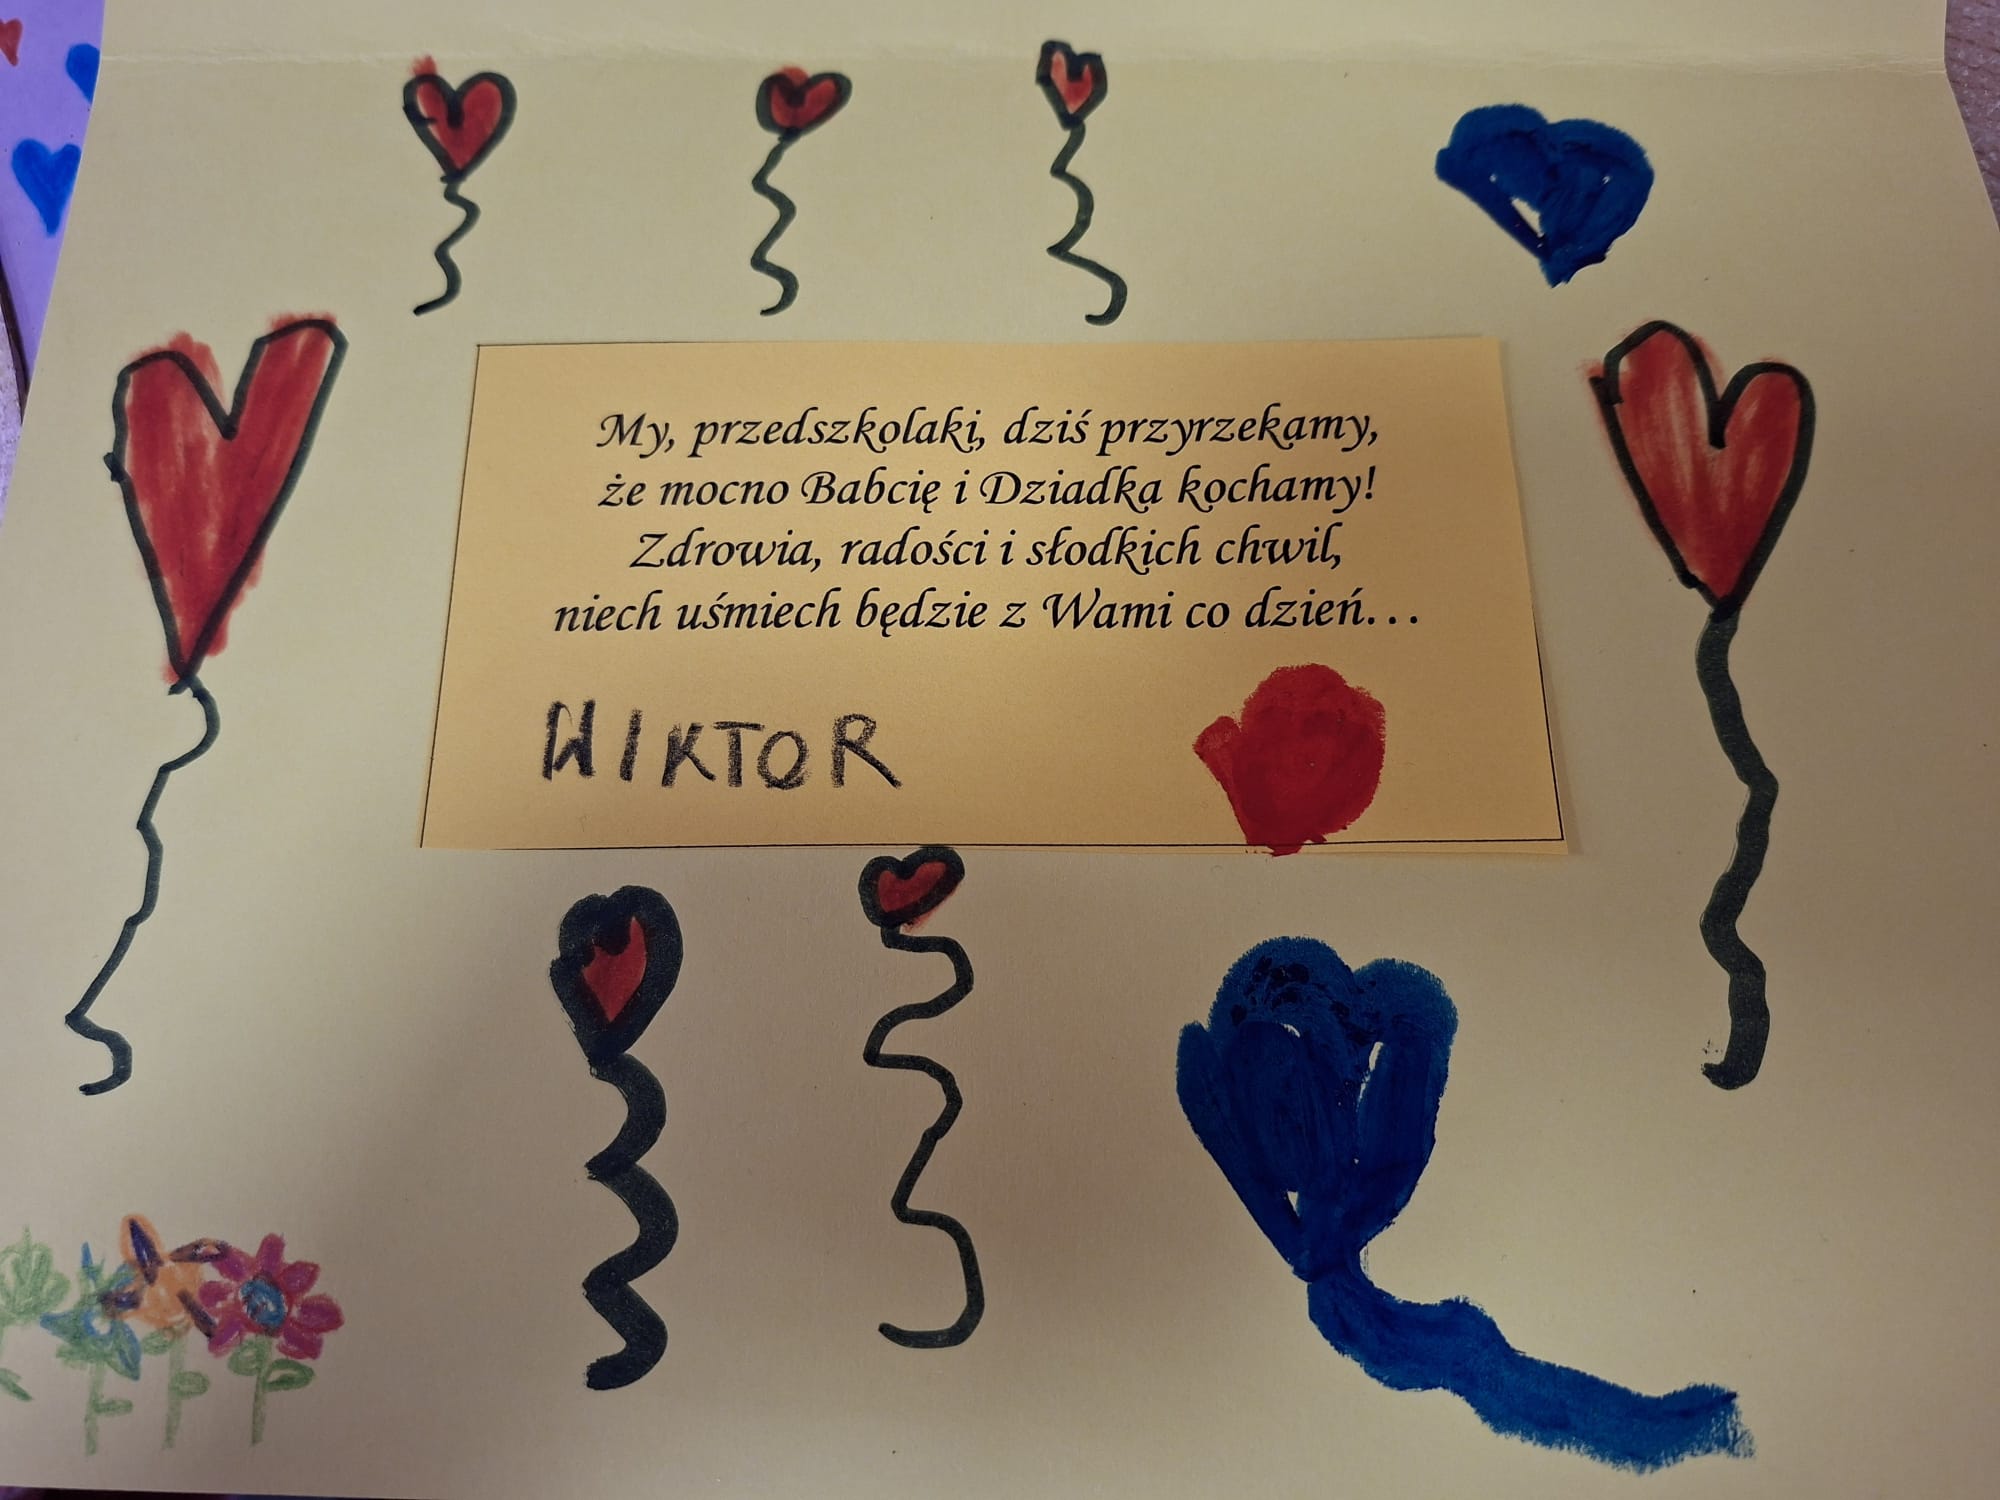 My, przedszkolaki, dziś przyrzekamy,
że mocno Babcię i Dziadka kochamy!
Zdrowia, radości i słodkich chwil,
niech uśmiech będzie z Wami co dzień...
WIKTOR